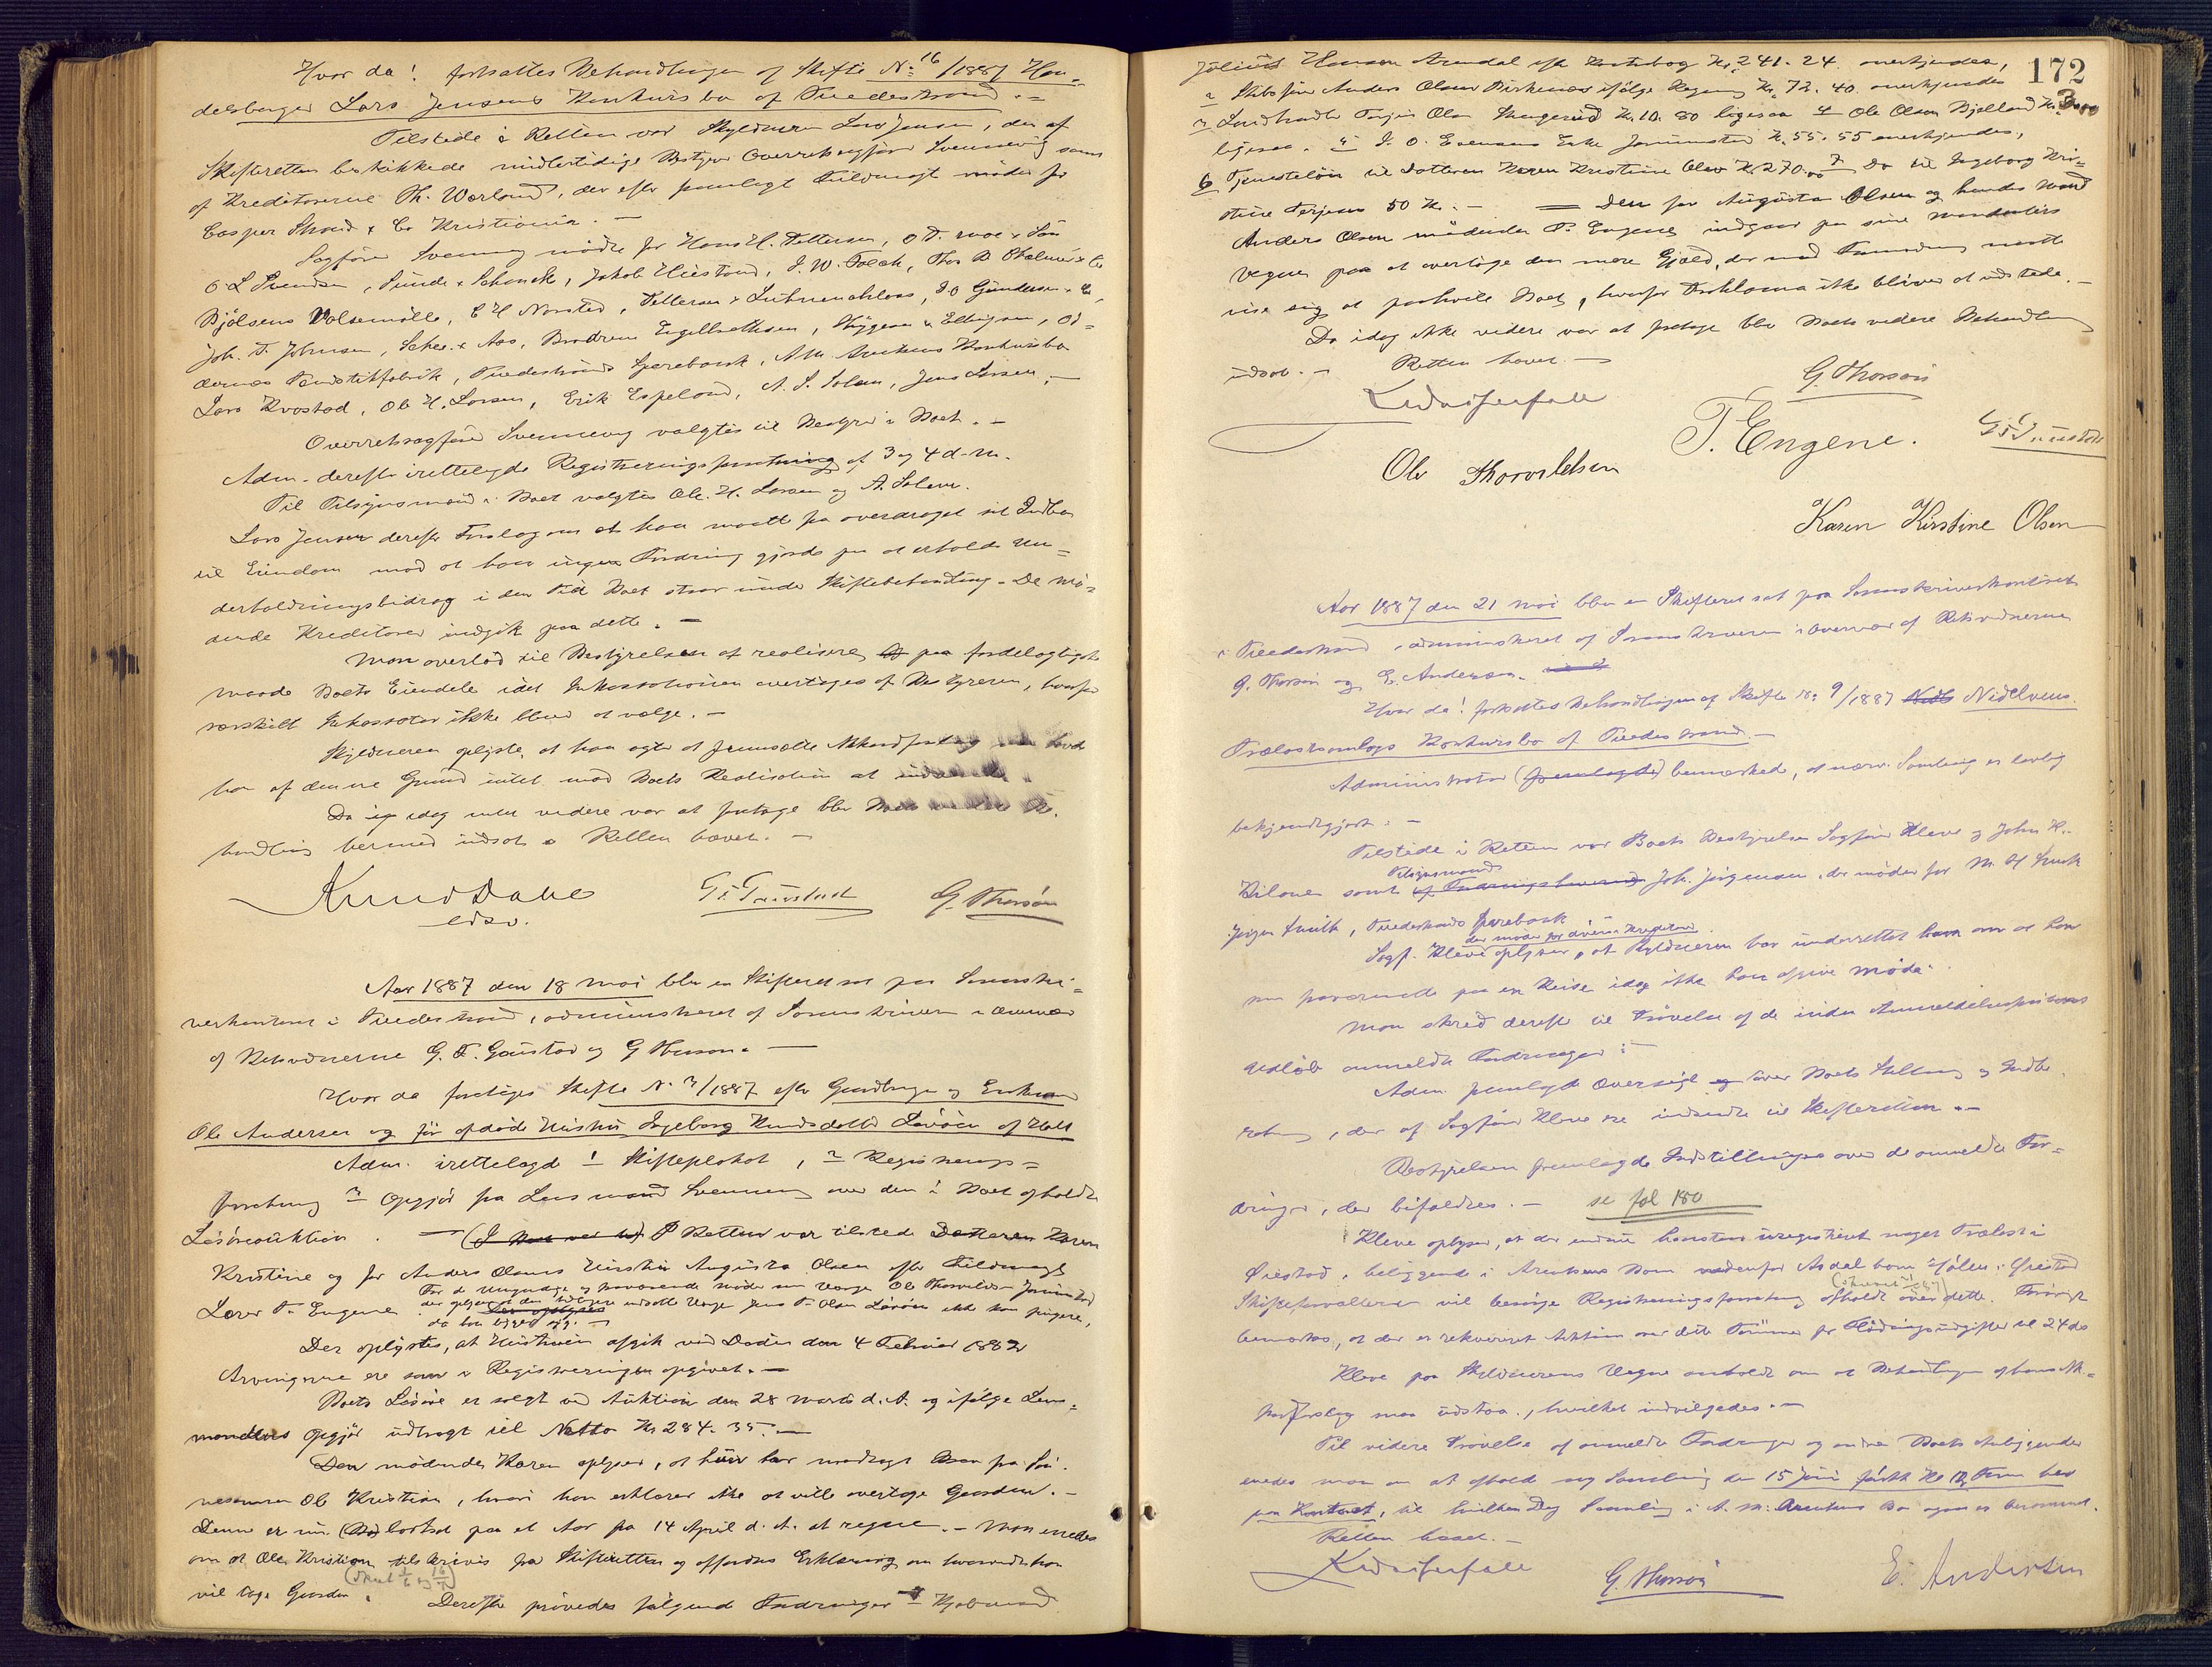 Hvor da! fortsattes Behandlingen af Skifte No 16/1887 Han-
delsborger Lars Jensens Konkursbo af Tvedestrand. -
Tilstede i Retten var Skyldneren Lars Jensen, den af
Skifteretten beskikkede midlertidige Bestyrer Overretssagfører Svennevig samt
af Kreditorerne Th. Worland, der efter fremlagt Fuldmagt møder for
Casper Strand & Co Kristiania. -
Sagfører Svennevig mødte for Hans H. Pettersen, O. T. Moe & Søn
O L Svendsen, Sunde & Schanche, Jakob Hiestand, J. W. Falck, Thor B Chalmer & Co
Bjølsens Valsemølle, E H Norsted, Pettersen & , J. O Gundersen & Co,
Joh. T. Johnsen, Schee & Aas, Brødrene Engelbrethsen, Huggenes & Ellingsen, Od-
dernes Tændstikfabrik, Tvedestrands Sparebank, A M. Arntzens Konkursbo
Lars Kvastad, Ole H. Larsen, Erik Espeland, A. S. Solem, Jens Larsen, -
Overretssagfører Svennevig valgtes til Bestyrer i Boet. -
Adm. derefter irettelagde Registreringsforretning af 3 og 4 d. M.
Til Tilsynsmænd i Boet valgtes Ole H. Larsen og A. Solem.
Lars Jensen derefter Forslag om at han maatte faa overdraget sit Indbo
til Eiendom mod at han ingen Fordring gjorde paa at erholde Un-
derholdningsbidrag i den Tid Boet staar under Skiftebehandling. De mø-
dende Kreditorer indgik paa dette. -
Man overlod til Bestyrelsen at realisere paa fordelagtigste
maade Boets Eiendele idet Inkassationen overtages af Bestyreren, hvorfor
særskilt Inkassator ikke blev at vælge. -
Skyldneren oplyste, at han agter at fremsætte Akkordforslag
har af denne Grund intet mod Boets Realisation at
Da idag intet videre var at foretage blev Boets
handling hermed udsat. Retten hævet. -
Knud Dahl
edsv.
G. F. Gaustad
G. Thorsøn
Aar 1887 den 18 Mai blev en Skifteret sat paa Sorenskri-
verkontoret i Tvedestrand, administreret af Sorenskriveren i Overvær
af Retsvidnerne G. F. Gaustad og G Thorson. -
Hvor da foretoges Skifte No 7/1887 efter Gaardbruger og Enkemand
Ole Andersen og før afdøde Hustru Ingeborg Knudsdatter Løvåen af Holt
Adm. irettelagde 1 Skifteprotokol, 2 Registrerings-
forretning 3 Opgjør fra Lensmand Svennevig over den i Boet afholdte
Løsøreauktion. - (I Boet var til) I Retten var tilstede Datteren Karen
Kristine og for Anders Olsens Hustru Augusta Olsen efter Fuldmagt
Lærer T. Engene. For de umyndige og fraværende møder som Værge Ole Thorvaldsen Jorunstad
der oplyser at den tidligere indsatte Værge Jens T. Olsen Løvåen ikke kan fungere,
da han ligger syg. -
Det oplystes, at Hustruen afgik ved Døden den 4 Februar 1882
Arvingerne ere som i Registreringen opgivet. -
Boets Løsøre er solgt ved Auktion den 28 Marts d. A. og ifølge Lens-
mandens Opgjør udbragt til Netto Kr 284. 35. -
Den mødende Karen oplyser, at hun har modtaget Brev fra Søn
nesønnen Ole Kristian, hvori han erklærer ikke at ville overtage Gaarden. -
Denne er nu bortsat paa et Aar fra 14 April d. A. at regne. - Man enedes
om at Ole Kristian tilskrives fra Skifteretten og affordres Erklæring om hvorvidt han
vil tage Gaarden.
Derefter prøvedes følgende Fordringer 1 Kjøbmand
172
Julius Hansen Arendal efter Kontrabog Kr. 241. 24. anerkjendes,
2 Skibsfører Anders Olsen Birkenæs ifølge Regning Kr. 72. 40. anerkjendes
3 Landhandler Terjes Olsen Kr. 10. 80 ligesaa 4 Ole Olsen Bjelland Kr. 3.00
ligesaa. 5 J. O. Evensens Enke Jorunstad Kr. 55. 55 anerkjendes,
6 Tjenesteløn til Datteren Karen Kristine Olsen Kr 270.00 7 Do til Ingeborg Kri-
stine Terjesen 50 Kr. - Den for Augusta Olsen og hendes Mand
Anders Olsen mødende T. Engene indgaar paa sine Mandanters
Vegne paa at overtage den mere Gjæld, der mod Formodning maatte
vise sig at paahvile Boet, hvorfor Proklama ikke bliver at udstede. -
Da idag ikke videre var at foretage blev Boets videre Behandling
udsat. - Retten hævet. -
G. Thorsøn
T. Engene.
G. F. Gaustad
Ole Thorvaldsen
Karen Kirstine Olsen
Aar 1887 den 21 Mai blev en Skifteret sat paa Sorenskriverkontoret
i Tvedestrand, administreret af Sorenskriveren i Overvær af Retsvidnerne
G. Thorsøn og E. Andersen.
Hvor da! fortsattes Behandlingen af Skifte No 9/1887 Nidelvens
Trælastkomlags Konkursbo af Tvedestrand. -
Administrator (fremlagde) bemærkede, at nærv. Samling er lovlig
bekjendtgjort. -
Tilstede i Retten var Boets Bestyrelse Sagfører Kleve og John K.
samt Tilsynsmand Joh. Jørgensen, der møder for M. H Smith
Jørgen Smith, Tvedestrands Sparebank
Sagf. Kleve der møder for diverse Kreditorer oplyser, at Skyldneren har underrettet ham om at han
nu fraværende paa en Reise idag ikke kan afgive Møde.
Man skred derefter til Prøvelse af de inden Anmeldelsesfristens
Udløb anmeldte Fordringer: -
Adm. fremlagde Oversigt over Boets Stilling og Indbe-
retning, der af Sagfører Kleve ere indsendte til Skifteretten. -
Bestyrelsen fremlagde Indstillinger over de anmeldte For-
dringer, der bifaldtes. - se fol 180
Kleve oplyser, at der endnu henstaar uregistreret noget Trælast i
Øiestad, beliggende i Arntzens Bom nedenfor Asdal bom : Øiestad
Skifteforvalteren vil besørge Registreringsforretning afholdt over dette. Forøvrigt
bemærkes, at der er rekvireret Auktion over dette Tømmer for Flødningsudgifter til 24 ds
Kleve paa Skyldnerens Vegne anholdt om at Behandlingen af hans Ak-
kordforslag maa udstaa, hvilket indvilgedes. -
Til videre Prøvelse af anmeldte Fordringer og andre Boets Anliggender
enedes man om at afholde ny Samling den 15 Juni førstk Kl 12 Form her
paa Kontoret, til hvilken Dag Samling i A. M. Arntzens Bo ogsaa er berammet.
Retten hævet. -
G. Thorsøn
E. Andersen